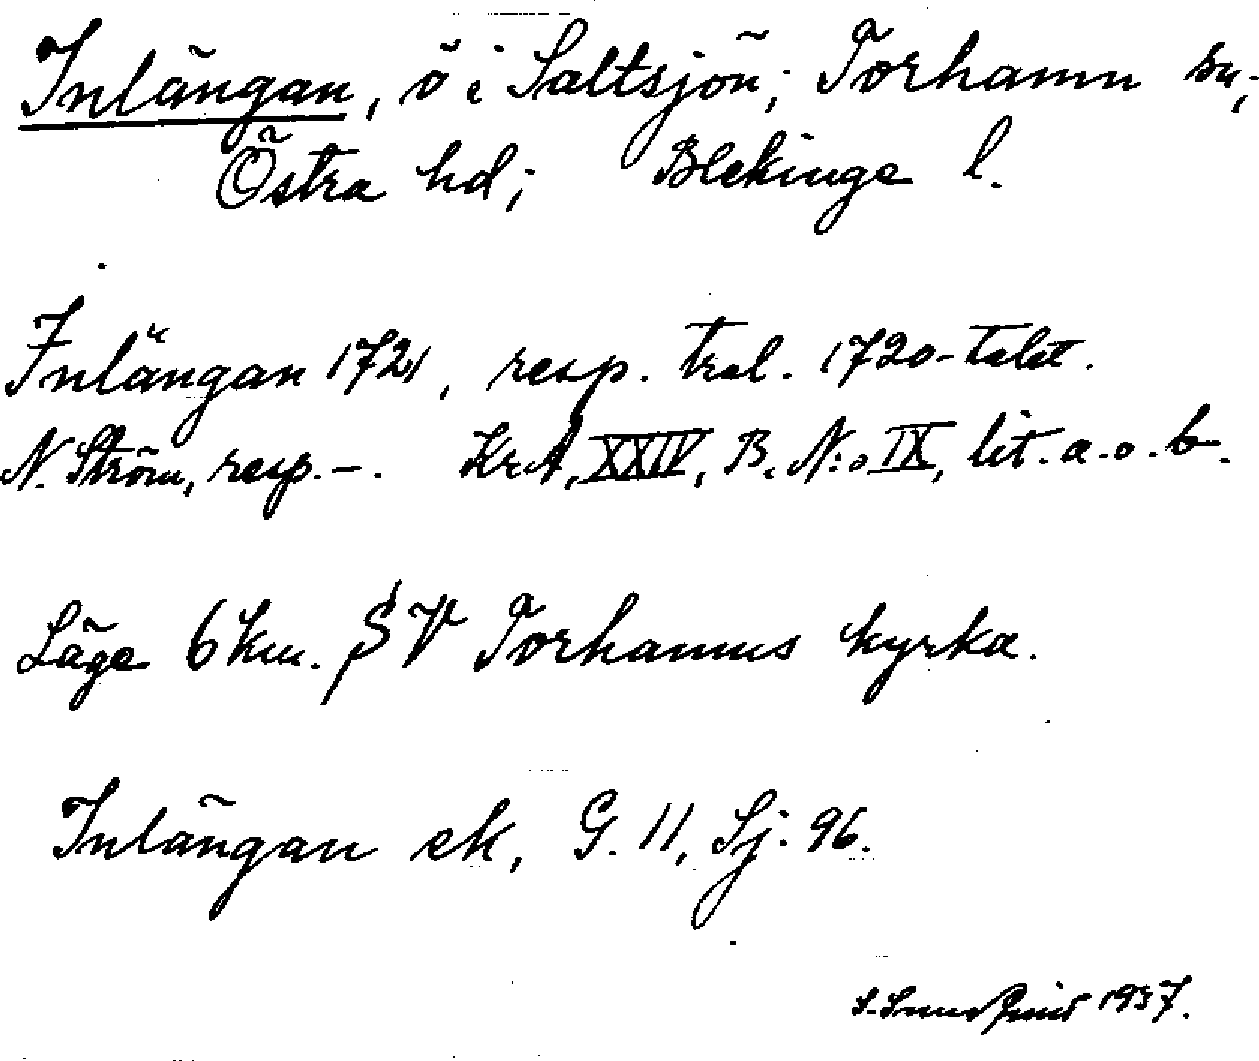 Inlängan, ö i Saltsjön; Torhamn sn;
Östra hd; Blekinge l.
Inlängan 1721, resp. trol. 1720-talet.
N. Ström, resp. -. KrA, XXIV, B. N:o IX, lit. a. o. b.
Läge 6 km. SV Torhamns kyrka.
Inlängan ek, G. 11, Sj: 96.
1937.